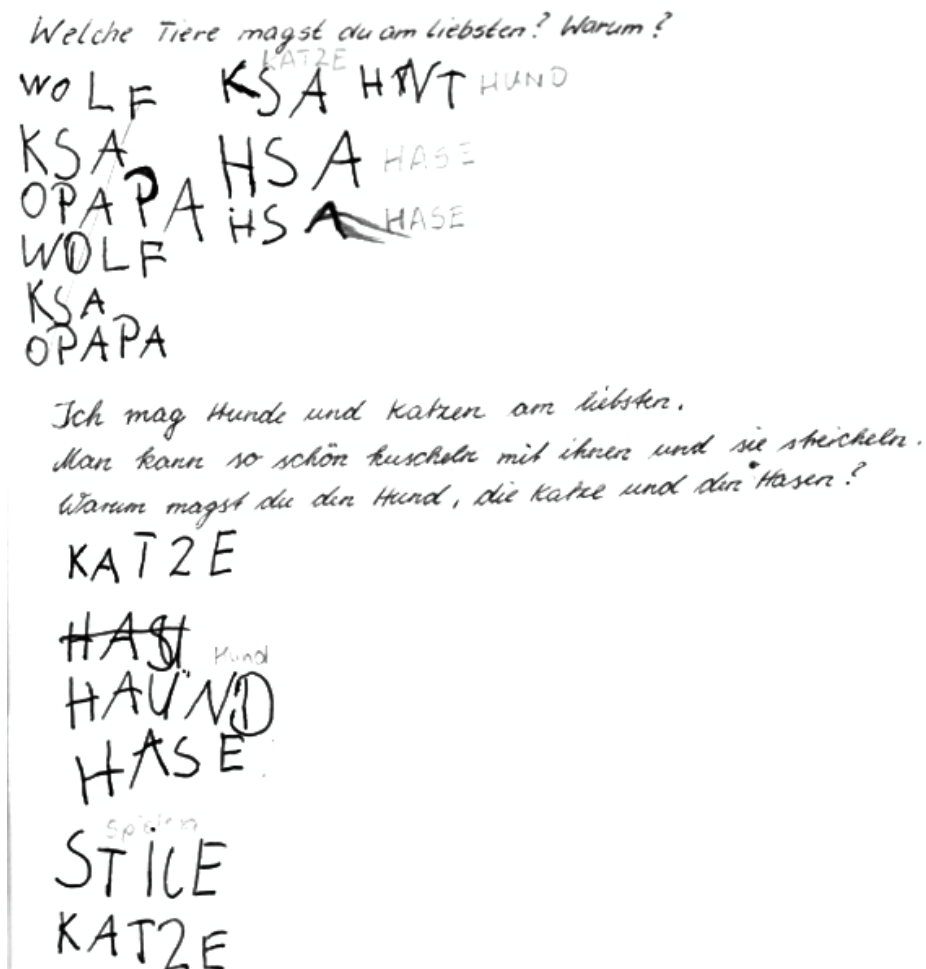 Welche Tiere magst du am liebsten? Warum?
KATZE
WOLF KSA HNT HUND
KSA HSA HASE
OPAPA HSA HASE
WOLF
KSA
OPAPA
Ich mag Hunde und Katzen am liebsten.
Man kann so schön kuscheln mit ihnen und sie streicheln.
Warum magst du den Hund, die Katze und den Hasen?
KATZE
Hund
HAÜND
HASE
Spielen
STILE
KATZE